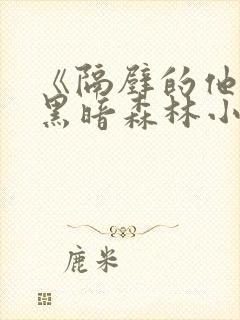 《隔壁的他
黑暗森林小
鹿米